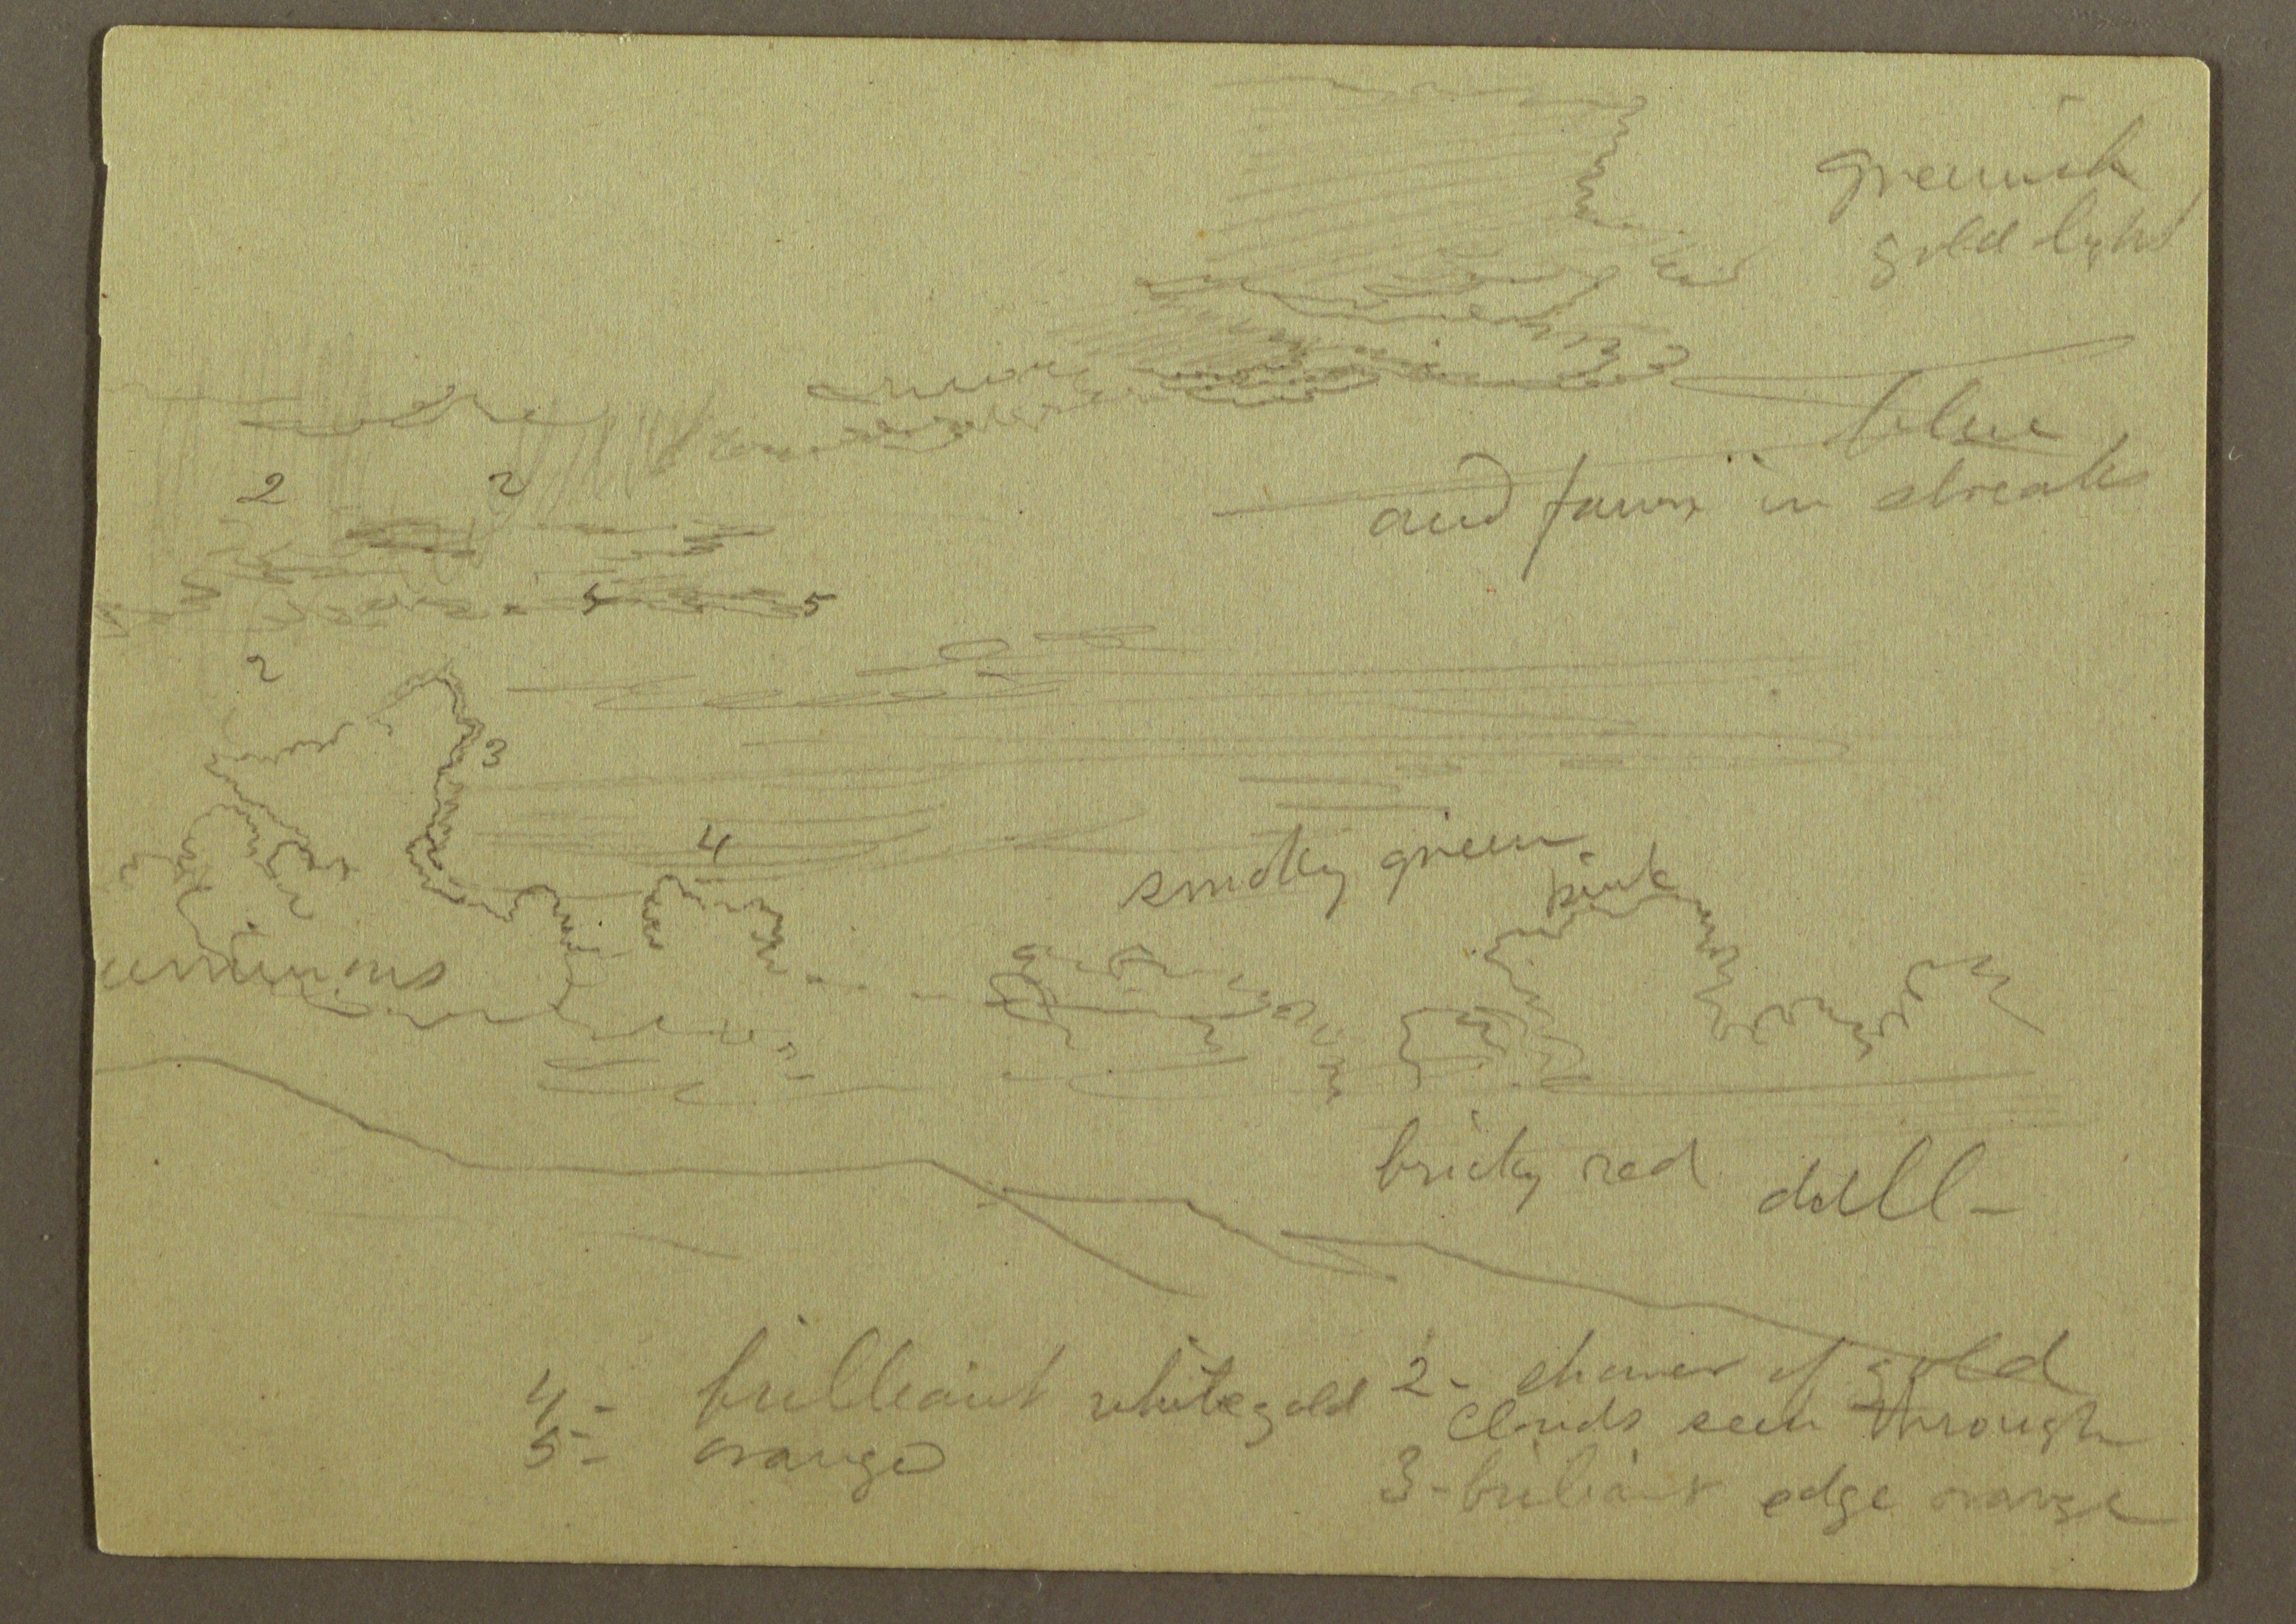 greenish
gold light
blue
and fawn in streaks
2 2
5 5
2
3
4
smoky green
pink
bricky red dull -
4 - brilliant white gold
5 - orange
2 - shower of gold
clouds seen through
3 - briliant edge orange